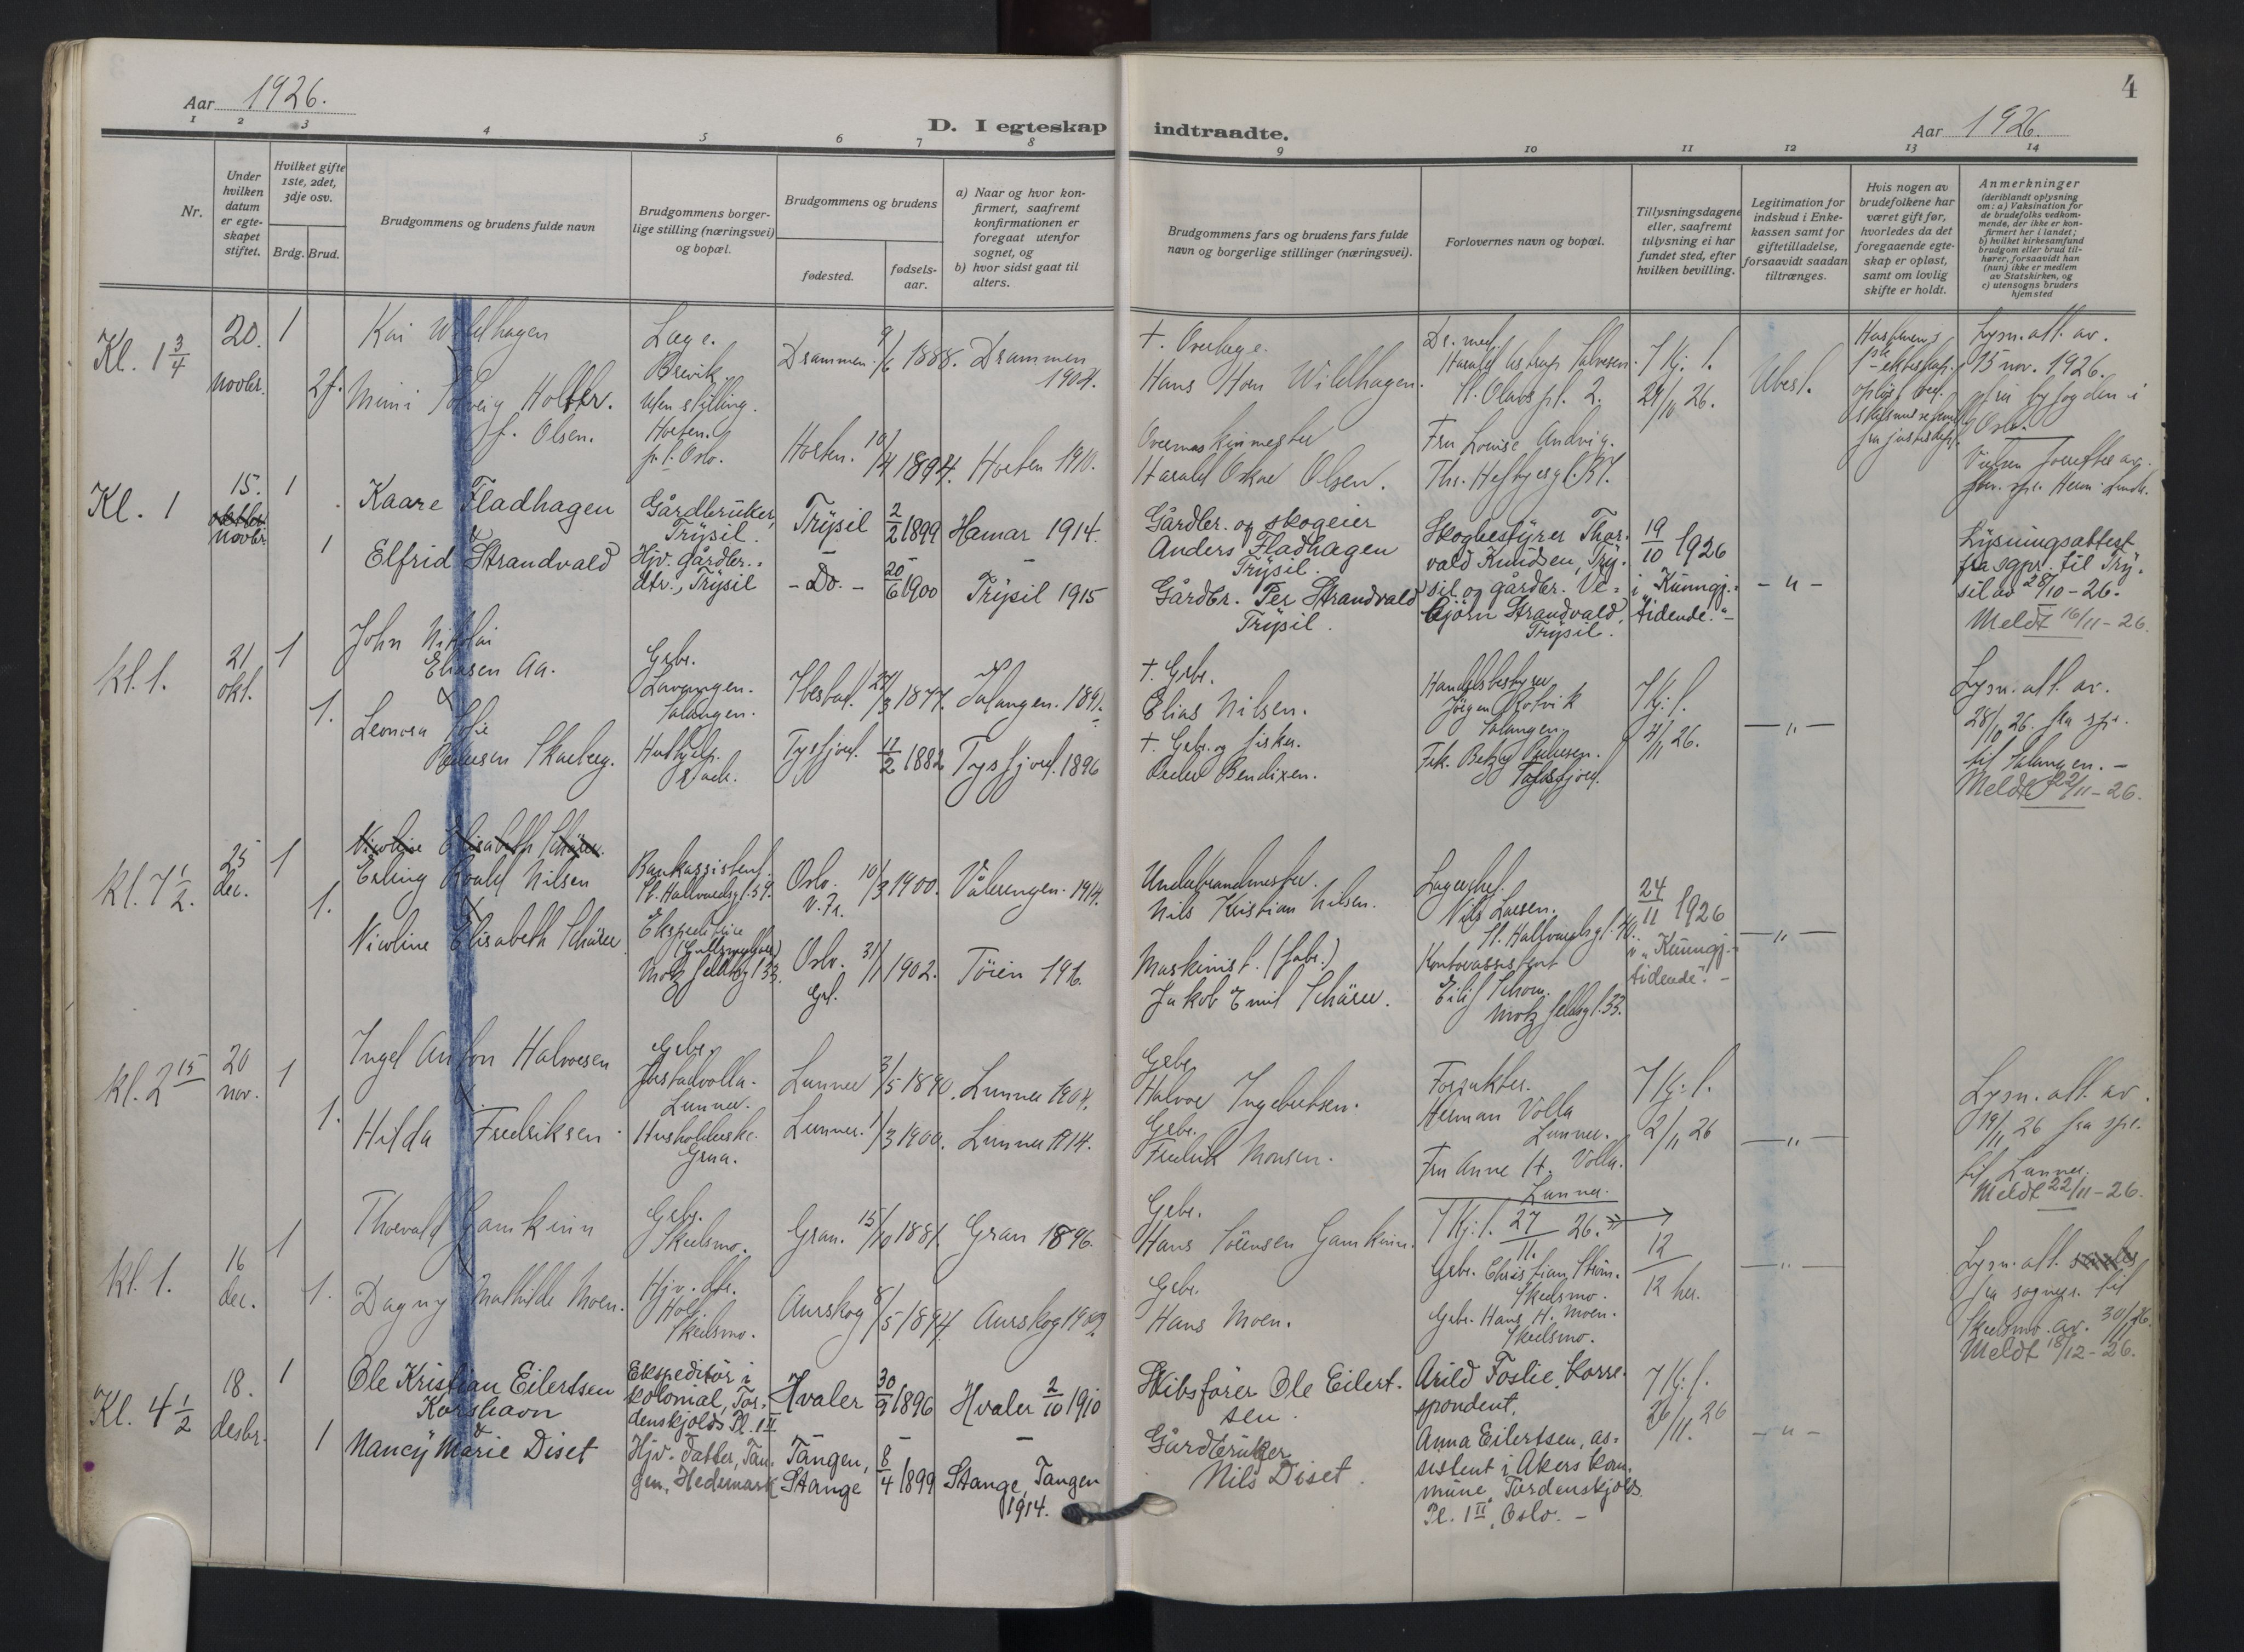 4
Aar 1926.
Aar 1926.
D. I egteskap indtraadte.
1 2 3 4 5 6 7 8 9 10 11 12 13 14
Nr.
Under hvilken datum er egte-skapet stiftet.
Hvilket gifte 1ste, 2det, 3dje osv.
Brdg. Brud.
Brudgommens og brudens fulde navn
Brudgommens borger-lige stilling (næringsvei) og bopæl.
Brudgommens og brudens
fødested.
fødsels-aar.
a) Naar og hvor kon-firmert, saafremt konfirmationen er foregaat utenfor sognet, og
b) hvor sidst gaat til alters.
Brudgommens fars og brudens fars fulde navn og borgerlige stillinger (næringsvei).
Forlovernes navn og bopæl.
Tillysningsdagene eller, saafremt tillysning ei har fundet sted, efter hvilken bevilling.
Legitimation for indskud i Enke-kassen samt for giftetilladelse, forsaavidt saadan tiltrænges.
Hvis nogen av brudefolkene har været gift før, hvorledes da det foregaaende egte-skap er opløst, samt om lovlig skifte er holdt.
Anmerkninger (deriblandt oplysning om: a) Vaksination for de brudefolks vedkom-mende, der ikke er kon-firmert her i landet; b) hvilket kirkesamfund brudgom eller brud til-hører, forsaavidt han (hun) ikke er medlem av Statskirken, og c) utensogns bruders hjemsted
Kl. 1 3/4
20. novbr.
1
2f.
Kai Wildhagen
Mimi Solveig Holter.
f. Olsen.
Læge.
Brevik.
Uten stilling.
Horten.
p. t. Oslo.
Drammen. 9/6 1888. Drammen 1904.
Horten. 10/4 1894. Horten 1910.
+. Overlæge.
Hans Horn Wildhagen.
Overmaskinmester
Harald Oskar Olsen.
Dr. med.
Harald Astrup Salvesen.
St. Olavs pl. 2.
Fru Louise Andvig.
Ths. Heftyes gt. 37.
7 Kj. l.
29/10 26.
Ubest.
Hustruens
1ste ekteskap.
opløst ved.
Lysn. att. av.
15 nov. 1926.
fra byfogden i
Oslo.
Kl. 1
15.
oktbr.
novbr.
1
1
Kaare Fladhagen
&
Elfrid Strandvald
Gårdbruker,
Trysil.
Hjv. gårdbr.-
dtr., Trysil
Trysil 2/2 1899 Hamar 1914.
- Do. - 20/6 1900 Trysil 1915
Gårdbr. og skogeier
Anders Fladhagen
Trysil.
Gårdbr. Per Strandvald
Trysil.
Skogbestyrer Thor-
vald Knudsen, Try-
sil og gårdbr. Ve-
bjørn Strandvald,
Trysil.
19/10 1926
i "Kunngj.-
tidende." -
- " -
Lysningsattest
fra sgpr. til Try-
sil av 28/10 - 26.
Meldt 16/11 - 26.
Kl. 1.
21
okt.
1
1.
John Nikolai
Eliasen Aa.
&
Leonora Sofie
Skarberg.
Grbr.
Lavangen.
Salangen.
Hushjelp.
Ibestad. 27/3 1877. Salangen. 1891.
Tysfjord. 12/2 1882 Tysfjord. 1896
+. Grbr.
Elias Nilsen.
+. Grbr. og fisker.
Peder Bendixen.
Handelsbestyrer
Jörgen Rotvik
Salangen.
7 Kj. l.
4/11 26.
— " —
Lysn. att. av.
28/10 26. fra spr.
til Salangen. -
Meldt 22/11 - 26.
Kl. 7 1/2.
25
dec.
1
1.
Nicoline Elisabeth Schärer.
Erling Roald Nilsen
&
Nicoline Elisabeth Schärer
Bankassistent.
St. Hallvardsgt. 59.
Ekspeditrice
Motzfeldtsgt. 33.
Oslo. 10/3 1900. Vålerengen. 1914.
V. Fr.
Oslo. 31/1 1902. Töien 1916.
Grl.
Underbrandmester.
Nils Kristian Nilsen.
Maskinist. (fabr.)
Jakob Emil Schärer.
Lagerchef.
Nils Larsen.
St. Hallvardsgt. 40.
Kontorassistent
Eilif Schou.
Motzfeldtsgt. 33.
24/11 1926
i "Kunngj.-
tidende". -
— " —
Kl. 2 15
20
nov.
1
1.
Ingel Anton Halvorsen
&
Hilda Fredriksen.
Grbr.
Lunner.
Husholderske.
Grua.
Lunner 3/5 1890. Lunner 1904.
Lunner. 1/3 1900. Lunner 1914.
Grbr.
Halvor Ingebretsen.
Grbr.
Fredrik Monsen.
Forpakter.
Herman Volla
Lunner.
Fru Anne H. Volla.
Lunner.
7 Kj. l.
2/11 26
— " —
Lysn. att. av.
19/11 26 fra spr.
til Lunner.
Meldt 22/11 - 26.
Kl. 1.
16
dec.
1
1.
Thorvald Gamkinn
&
Dagny Mathilde Moen.
Grbr.
Skedsmo.
Hjv. dtr.
Holt.
Skedsmo.
Gran. 15/10 1881. Gran 1896.
Aurskog 8/5 1894. Aurskog 1909.
Grbr.
Hans Sörensen Gamkinn.
Grbr.
Hans Moen.
7 Kj. l. 27/11. 26.
Grbr. Christian Ström.
Skedsmo.
Grbr. Hans H. Moen.
Skedsmo.
12/12 her.
— " —
Lysn. att.
fra sognepr. til
Skedsmo. av. 30/11 26.
Meldt 18/12 - 26.
Kl. 4 1/2
18.
desbr.
1
1
Ole Kristian Eilertsen
Korshavn
&
Nancy Marie Diset
Ekspeditør i
kolonial, Tor-
denskjolds Pl. 1 II
Hjv. datter, Tan-
gen, Hedemark
Hvaler 30/9 1896 Hvaler 2/10 1910
Tangen,
Stange 8/4 1899 Stange, Tangen
1914.
Skibsfører Ole Eilert-
sen.
Gårdbruker
Nils Diset.
Arild Foslie, Korre-
spondent.
Anna Eilertsen, as-
sistent i Akers kom-
mune, Tordenskjolds
Pl. 1 II, Oslo. -
7 Kj. l.
26/11. 26
- " -